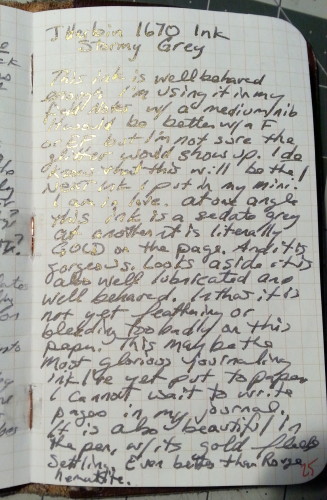 J Herbin 1670 Ink
Stormy Grey
This ink is well behaved
enough. I'm using it in my
w/ a medium nib
would be better w/ a F
or EF but I'm not sure the
glitter would show up. I do
know that this will be the
next ink I put in my mini.
I am in love. at one angle
this ink is a sedate grey
at another it is literally
GOLD on the page. And it is
gorgeous. Looks aside it is
also well lubricated and
well behaved. In that it is
not yet feathering or
bleeding too badly on this
paper. This may be the
most glorious journaling
ink I've yet put to paper
I cannot wait to write
pages in my journal.
It is also beautiful in
the pen, w/ its gold flecks
settling. Even better than Rouge
hematite.
25